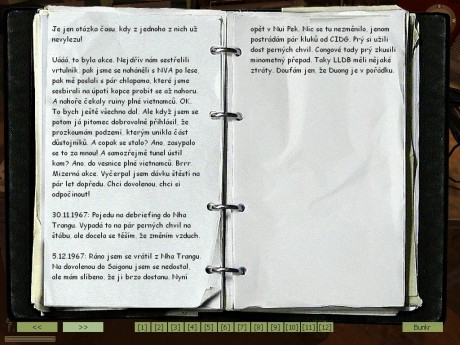 Je jen otázka času, kdy z jednoho z nich už
nevylezu!
Uááá, to byla akce. Nejdřív nám sestřelili
vrtulník, pak jsme se naháněli s NVA po lese,
pak mě poslali s pár chlapama, které jsme
sesbírali na úpatí kopce probít se až nahoru.
A nahoře čekaly ruiny plné vietnamců. OK.
To bych ještě všechno dal. Ale když jsem se
potom já pitomec dobrovolně přihlásil, že
prozkoumám podzemí, kterým unikla část
důstojníků. A copak se stalo? Ano, zasypalo
se to za mnou! A samozřejmě tunel ústil
kam? Ano, do vesnice plné vietnamců. Brrr.
Mizerná akce. Vyčerpal jsem dávku štěstí na
pár let dopředu. Chci dovolenou, chci si
odpočinout!
30.11.1967: Pojedu na debriefing do Nha
Trangu. Vypadá to na pár perných chvil na
štábu, ale docela se těším, že změním vzduch.
5.12.1967: Ráno jsem se vrátil z Nha Trangu.
Na dovolenou do Saigonu jsem se nedostal,
ale mám slíbeno, že ji brzo dostanu. Nyní
opět v Nui Pek. Nic se tu nezměnilo, jenom
postrádám pár kluků od CIDG. Prý si užili
dost perných chvil. Congové tady prý zkusili
minometný přepad. Taky LLDB měli nějaké
ztráty. Doufám jen, že Duong je v pořádku.
<< >> [1] [2] [3] [4] [5] [6] [7] [8] [9] [10] [11] [12] Bunkr